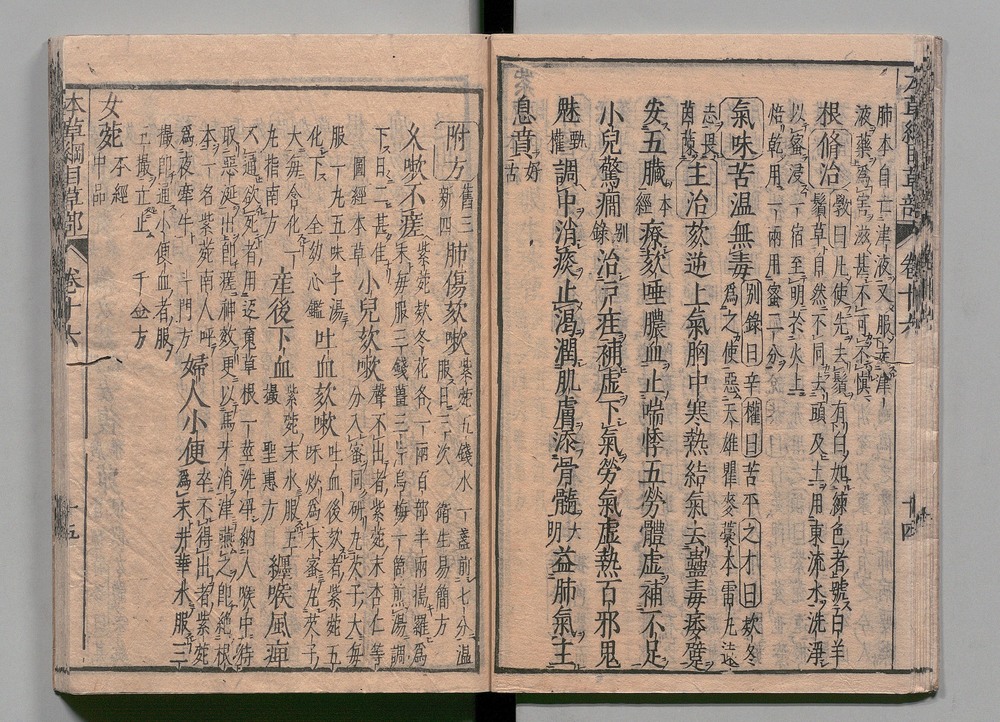 本草綱目草部 卷十六 十四
肺本自亡津液又服走津
液藥爲害滋甚不可不慎
根修治 斅曰凡使先去鬚有白如練色者號曰白羊
鬚草自然不同去頭及土用東流水洗淨
以蜜浸一宿至明於火上
焙乾用一兩用蜜二分
氣味苦溫無毒 别錄曰辛權曰苦平之才曰欵冬
爲之使惡天雄瞿麥藁本雷丸遠
志畏
茵蔯 主治欬逆上氣胸中寒熱結氣去蠱毒痿躄
安五臟本經 療欬唾膿血止喘悸五勞體虛補不足
小兒驚癇别錄 治尸疰補虛下氣勞氣虛熱百邪鬼
魅甄權 調中消痰止渴潤肌膚添骨髓大明 益肺氣主
息賁好古
附方舊三新四 肺傷欬嗽紫菀五錢水一盞煎七分溫
服日三次 衛生易簡方
久嗽不瘥紫菀欵冬花各一兩百部半兩搗羅爲
末每服三錢薑三片烏梅一箇煎湯調
下日二甚佳 小兒欬嗽聲不出者紫菀末杏仁等
圖經本草 分入蜜同研丸芡子大每
服一丸五味子湯 吐血欬嗽吐血後欬者紫菀五
化下 全幼心鑑 味炒爲末蜜丸芡子
大每含化一丸 産後下血紫菀末水服五
九指南方 撮 聖惠方 纏喉風痺
不通欲死者用返魂草根一莖洗淨納入喉中待
取惡涎出即瘥神效更以馬牙消津嚥之即絶根
本一名紫菀南人呼 婦人小便卒不得出者紫菀
爲夜牽牛 斗門方 爲末井華水服三
撮即通小便血者服
五撮立止 千金方
女菀本經中品
本草綱目草部 卷十六 十五